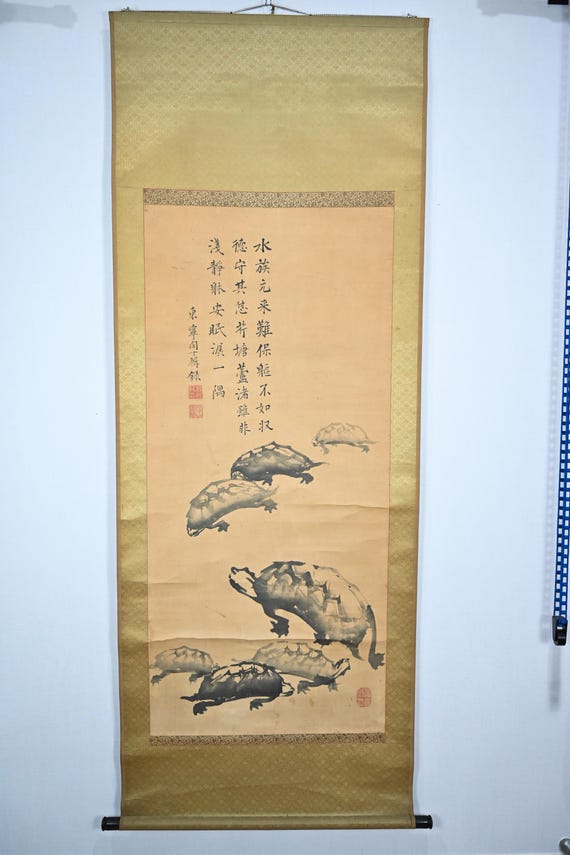 水族元来難保軀不如収
德守其愚芹塘蘆渚雖非
淺靜眠安眠浪一隅
東
錄